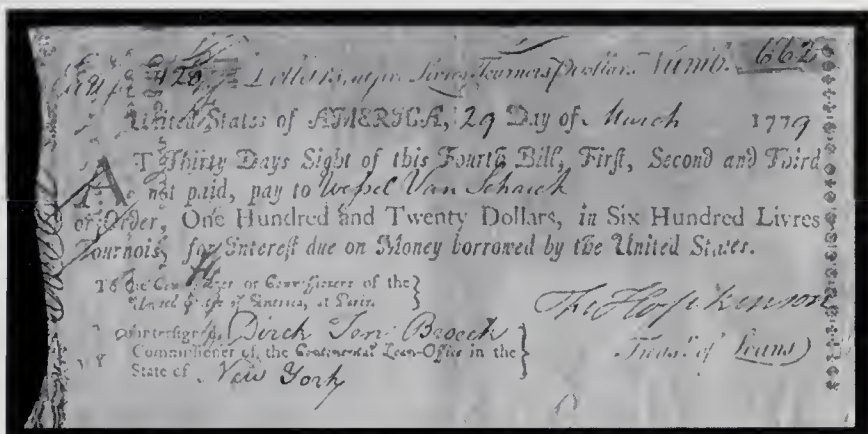 Dollars Numb. 662
United States of AMERICA, 29 Day of March 1779
AT Thirty Days Sight of this Fourth Bill, First, Second and Third
not paid, pay to Wessel Van Schaick
or Order, One Hundred and Twenty Dollars, in Six Hundred Livres
Tournois, for Interest due on Money borrowed by the United States.
To the Commissioner or Commissioners of the
United States of America, at Paris.
Countersigned, Dirck Ten Broeck
Commissioner of the Continental Loan-Office in the
State of New York
Fra Hopkinson
Treasr. of Loans